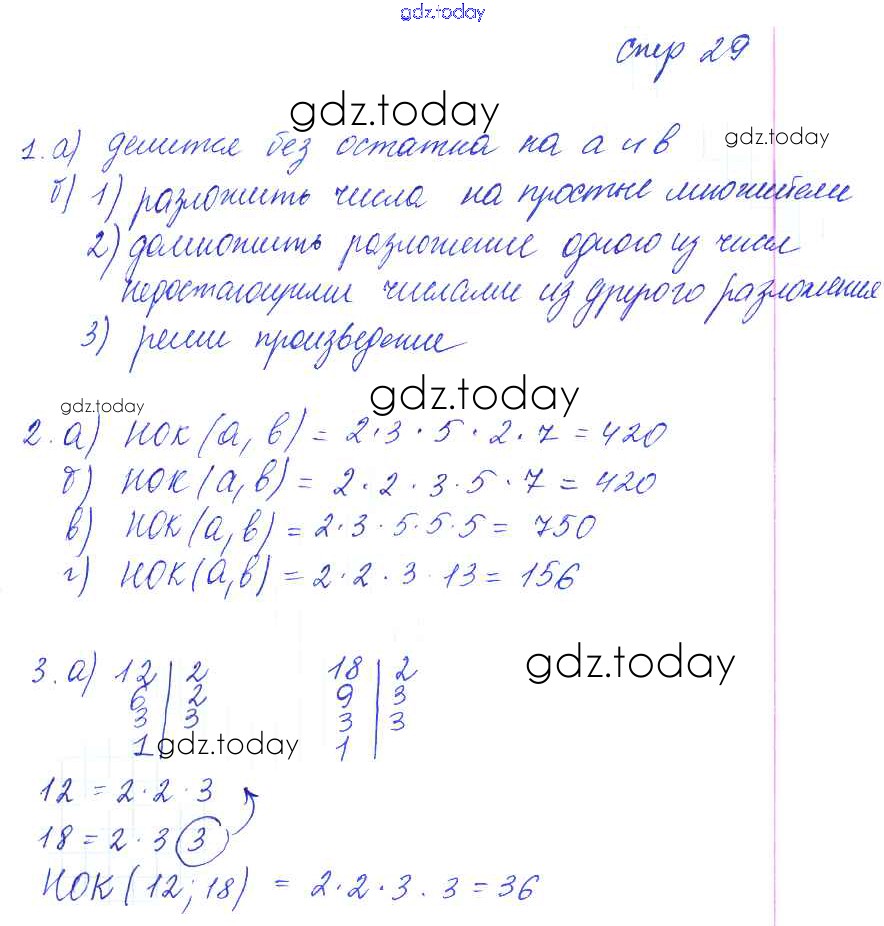 gdz.today
стр 29
gdz.today
gdz.today
1. а) делится без остатка на а и в
б) 1) разложить числа на простые множители
2) домножить разложение одного из чисел
недостающими числами из другого разложения
3) реши произведение
gdz.today
gdz.today
2. а) НОК (а, в) = 2·3·5·2·7 = 420
б) НОК (а, в) = 2·2·3·5·7 = 420
в) НОК (а, в) = 2·3·5·5·5 = 750
г) НОК (а, в) = 2·2·3·13 = 156
gdz.today
3. а) 12 | 2 18 | 2
6 | 2 9 | 3
3 | 3 3 | 3
1 | 1 |
gdz.today
12 = 2·2·3
18 = 2·3 3
НОК (12; 18) = 2·2·3·3 = 36